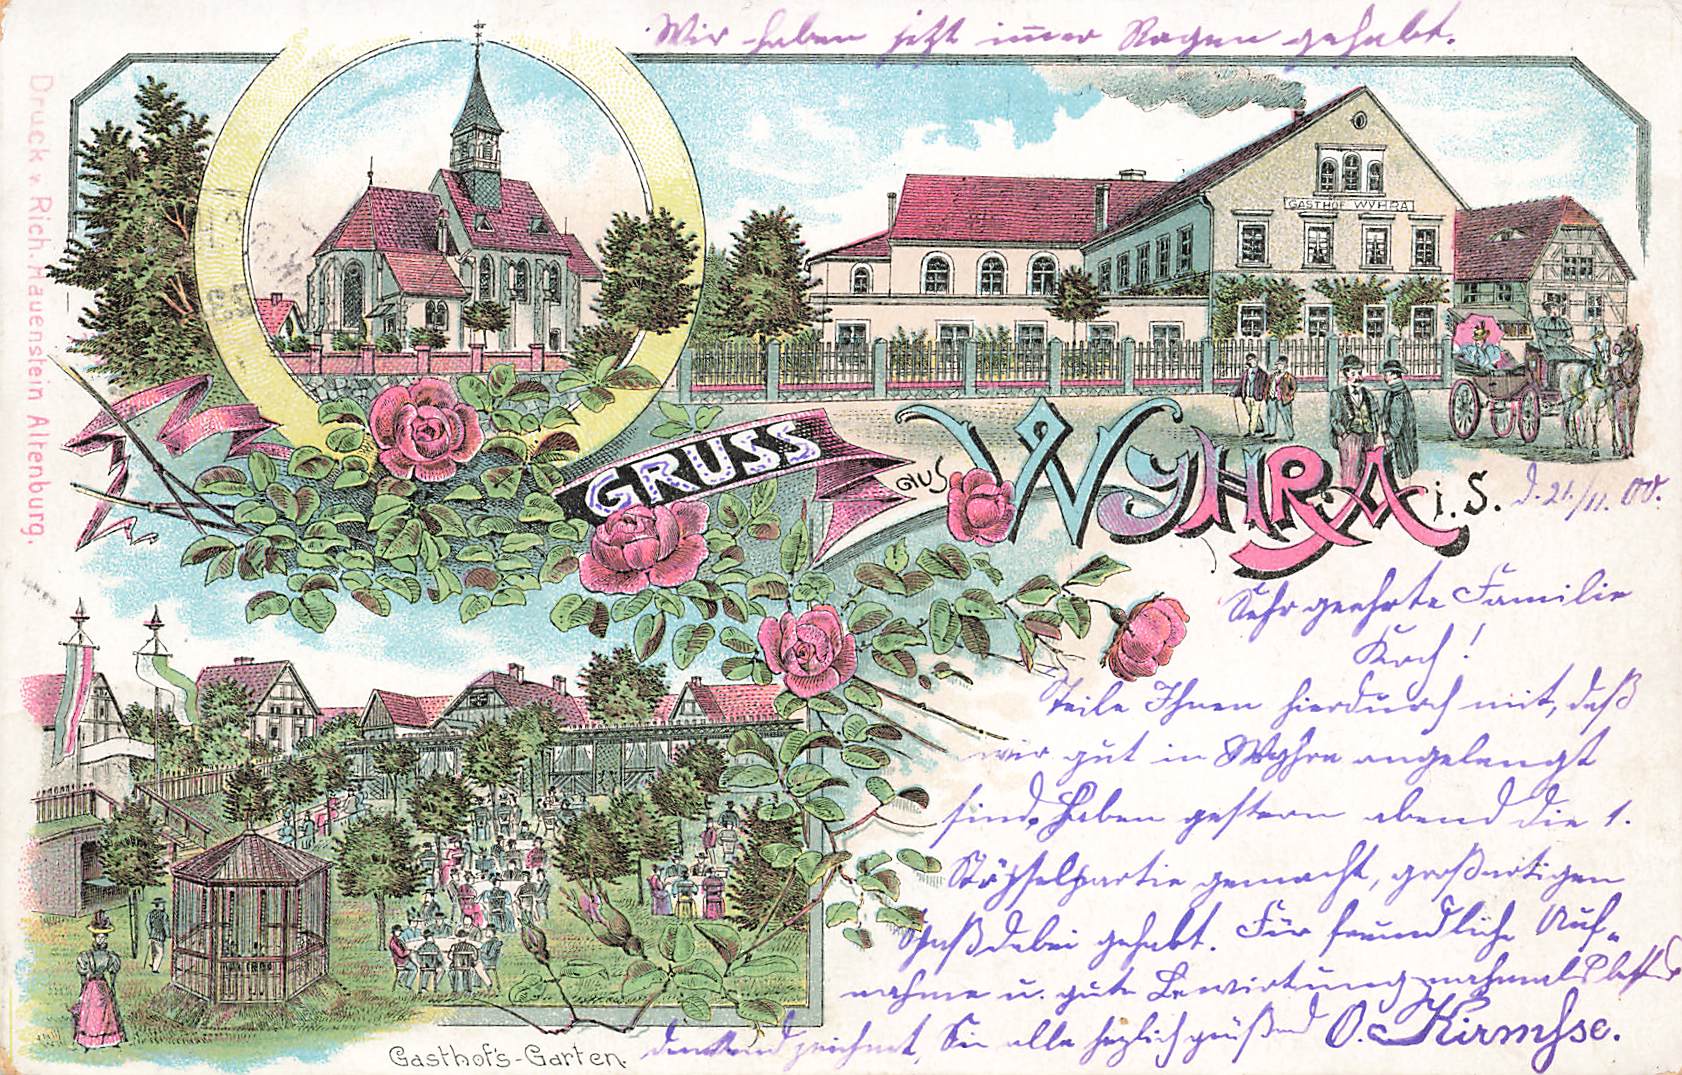 Wir haben jetzt immer Regen gehabt.
Druck v. Rich. Hauenstein Altenburg.
GASTHOF WYHRA
GRUSS
aus WYHRA i. S. d. 21./11. 00.
Sehr geehrte Familie
Koch!
Teile Ihnen hierdurch mit, daß
wir gut in Wyhra angelangt
sind. Haben gestern abend die 1.
gemacht, großartigen
Spaß dabei gehabt. Für freundliche Auf-
nahme u. gute Bewirtung nochmals bestens
dankend zeichnet, Sie alle herzlich grüßend O. Kirmsse.
Gasthof's-Garten.